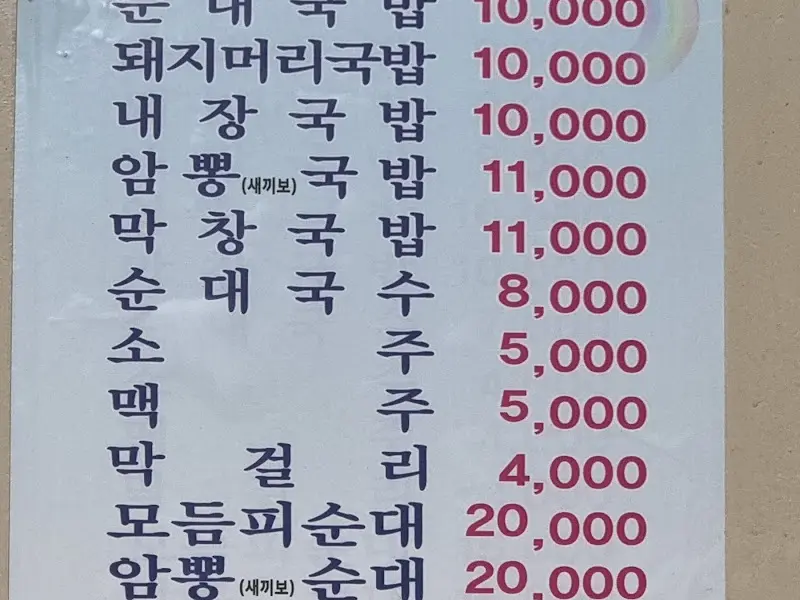 순대국밥 10,000
돼지머리국밥 10,000
내장국밥 10,000
암뽕(새끼보)국밥 11,000
막창국밥 11,000
순대국수 8,000
소주 5,000
맥주 5,000
막걸리 4,000
모듬피순대 20,000
암뽕(새끼보)순대 20,000